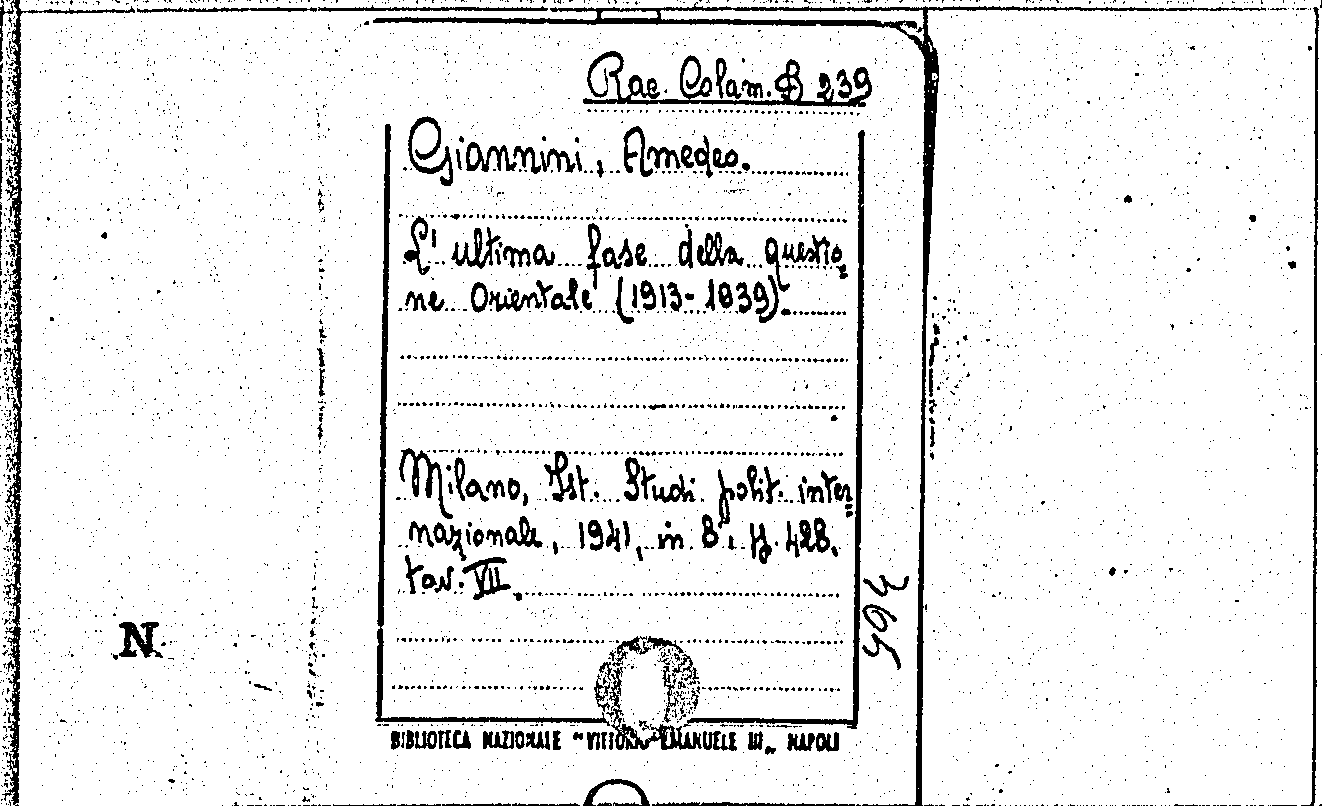 Rac. Colam. B 239
Giannini, Amedeo.
L'ultima fase della questio
ne Orientale (1913-1939).
Milano, Ist. Studi polit. inter
nazionale, 1941, in 8°. pp. 428.
tav. VII.
N.
BIBLIOTECA NAZIONALE "VITTORIO EMANUELE III„ NAPOLI